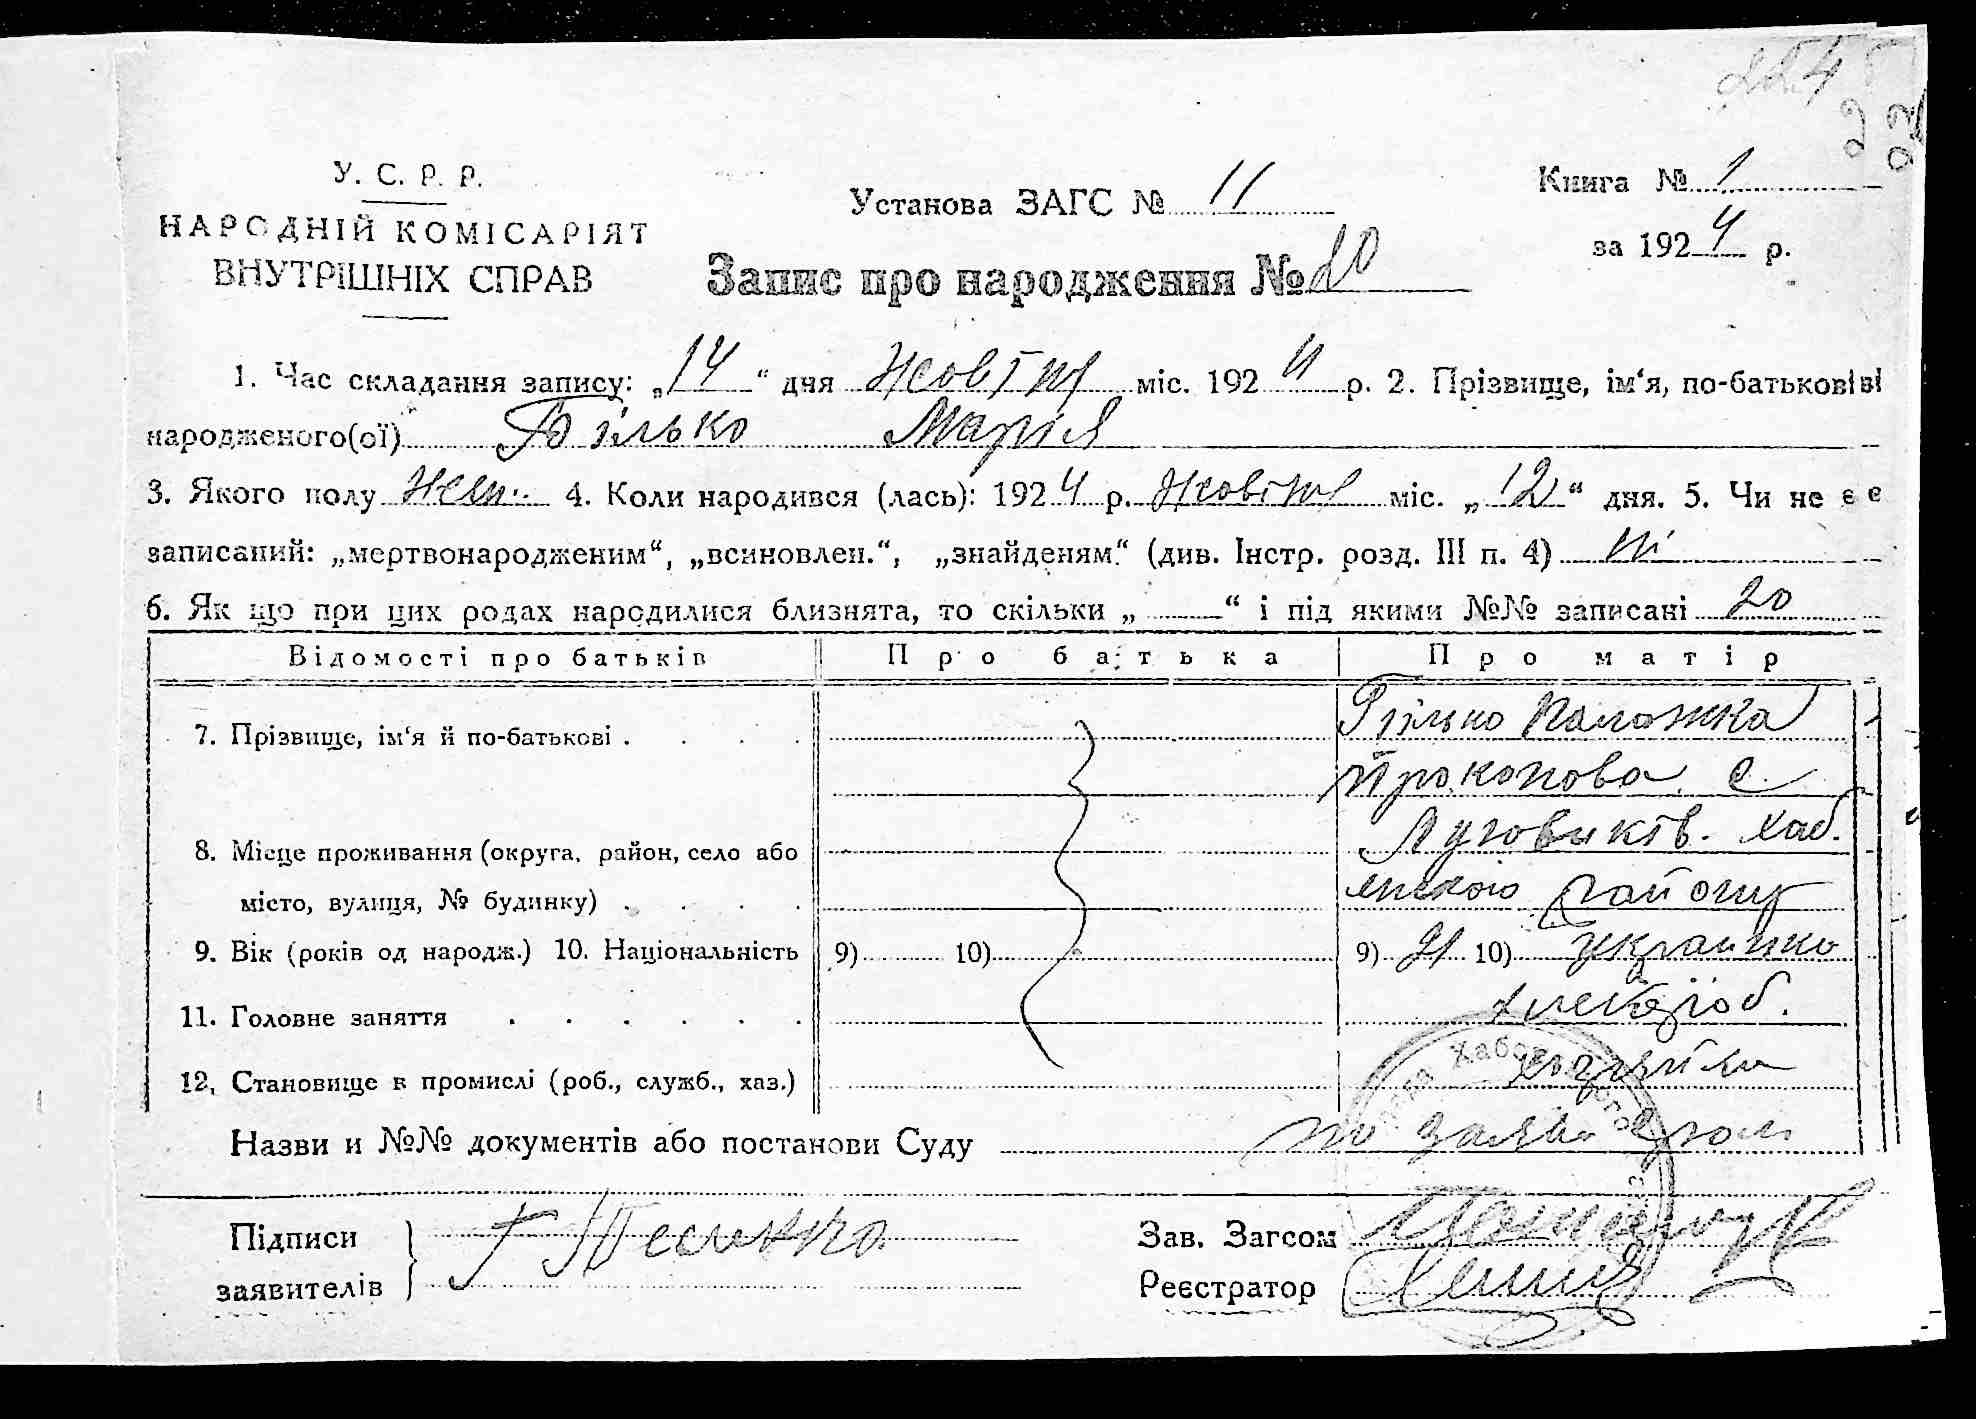 224
У. С. Р. Р.
НАРОДНІЙ КОМІСАРІЯТ
ВНУТРІШНІХ СПРАВ
Установа ЗАГС № 11
Книга № 1
за 1924 р.
Запис про народження № 20
1. Час складання запису: „14“ дня Жовтня міс. 1924 р. 2. Прізвище, ім‘я, по-батькові ві
народженого(ої) Білько Марія
3. Якого полу жен. 4. Коли народився (лась): 1924 р. Жовтня міс. „12“ дня. 5. Чи не є є
записаний: „мертвонародженим“, „всиновлен.“, „знайденям.“ (див. Інстр. розд. III п. 4) ні
6. Як що при цих родах народилися близнята, то скільки „ “ і під якими №№ записані 20
Відомості про батьків Про батька Про матір
7. Прізвище, ім‘я й по-батькові . . . . Білько Паложка
Прокопова с.
8. Місце проживання (округа, район, село або Луговиків. Хаб.
місто, вулиця, № будинку) . . . . району
9. Вік (років од народж.) 10. Національність 9) 10) 9) 21 10) українка
11. Головне заняття . . . . . . хлебороб.
12, Становище в промислі (роб., служб., хаз.) хазяйка
Назви и №№ документів або постанови Суду по заяві
Підписи
заявителів
Зав. Загсом
Реєстратор